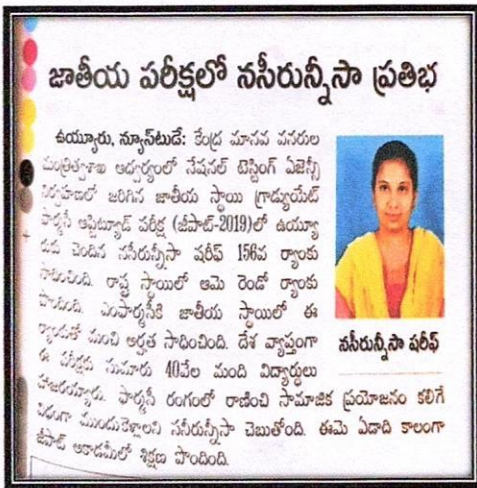 జాతీయ పరీక్షలో నసీరున్నీసా ప్రతిభ
ఉయ్యూరు, న్యూస్‌టుడే: కేంద్ర మానవ వనరుల
మంత్రిత్వశాఖ ఆధ్వర్యంలో నేషనల్ టెస్టింగ్ ఏజెన్సీ
నిర్వహణలో జరిగిన జాతీయ స్థాయి గ్రాడ్యుయేట్
ఫార్మసీ ఆప్టిట్యూడ్ పరీక్ష (జీపాట్-2019)లో ఉయ్యూ
రుకు చెందిన నసీరున్నీసా షరీఫ్ 156వ ర్యాంకు
సాధించింది. రాష్ట్ర స్థాయిలో ఆమె రెండో ర్యాంకు
పొందింది. ఎంఫార్మసీకి జాతీయ స్థాయిలో ఈ
ర్యాంకుతో మంచి అర్హత సాధించింది. దేశ వ్యాప్తంగా
ఈ పరీక్షకు సుమారు 40వేల మంది విద్యార్థులు
హాజరయ్యారు. ఫార్మసీ రంగంలో రాణించి సామాజిక ప్రయోజనం కలిగే
విధంగా ముందుకెళ్లాలని నసీరున్నీసా చెబుతోంది. ఈమె ఏడాది కాలంగా
జీపాట్ అకాడమీలో శిక్షణ పొందింది.
నసీరున్నీసా షరీఫ్